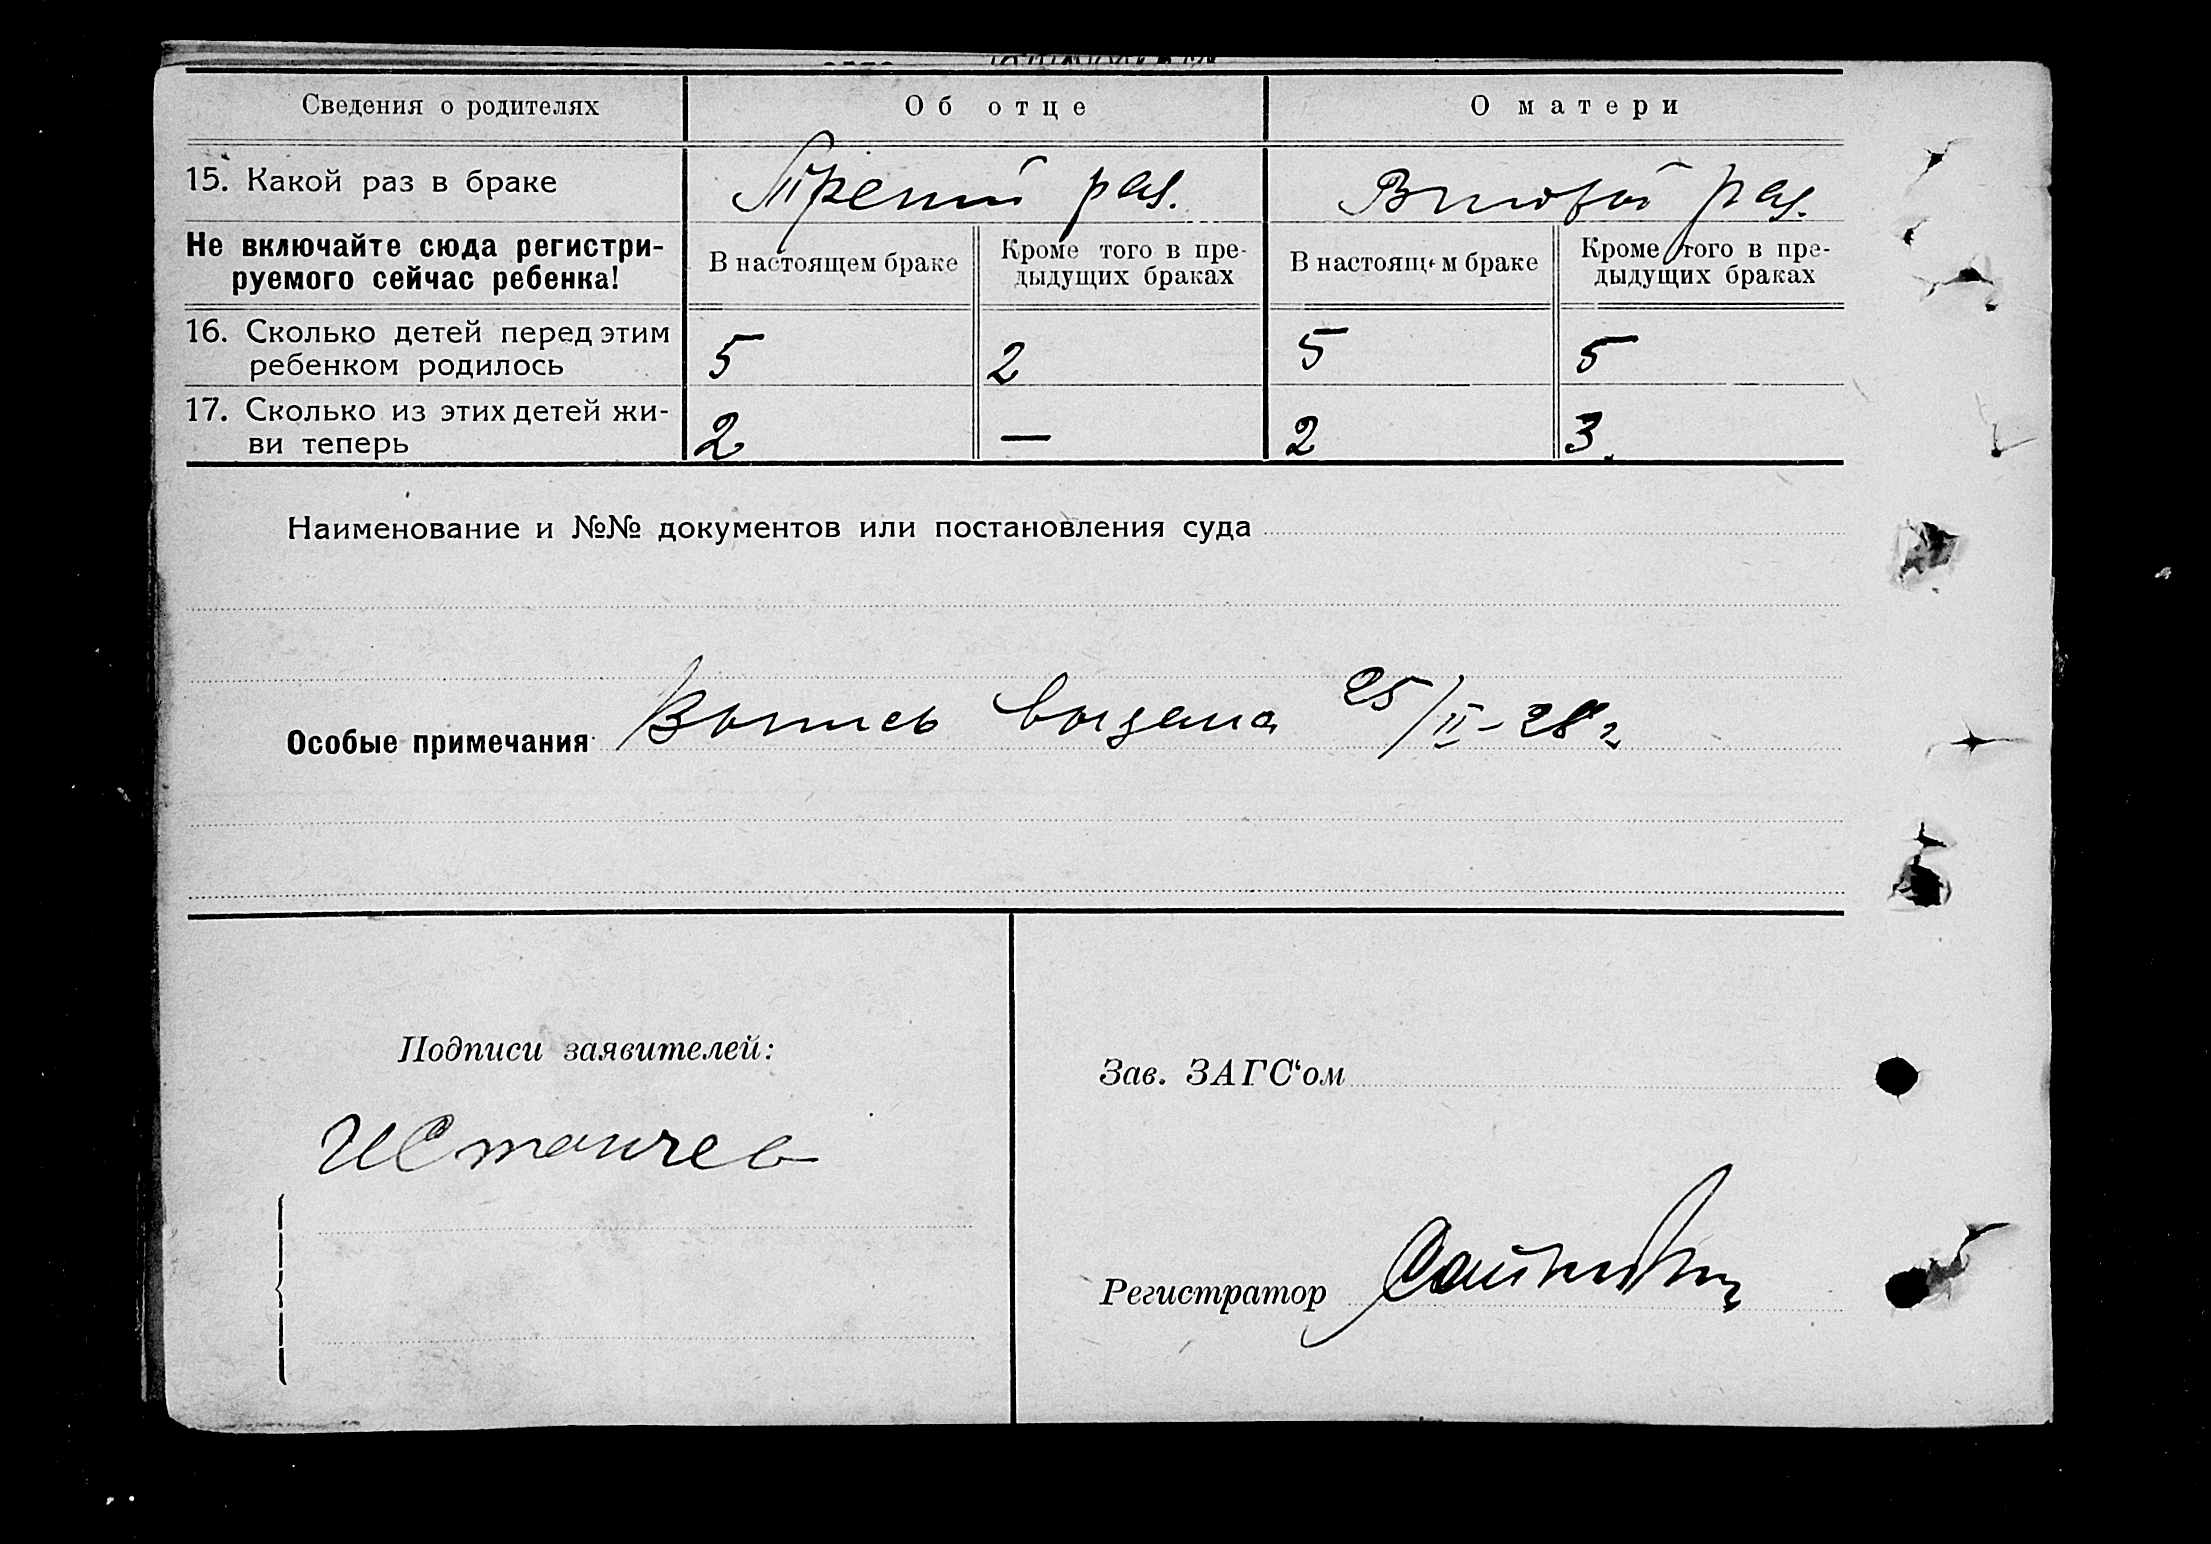 Сведения о родителях
Об отце
О матери
15. Какой раз в браке
Третий раз.
Второй раз.
Не включайте сюда регистри-
руемого сейчас ребенка!
В настоящем браке
Кроме того в пре-
дыдущих браках
В настоящем браке
Кроме того в пре-
дыдущих браках
16. Сколько детей перед этим
ребенком родилось
5
2
5
5
17. Сколько из этих детей жи-
ви теперь
2
—
2
3.
Наименование и №№ документов или постановления суда
Особые примечания Выпись выдана 25/II-28 г
Подписи заявителей:
Зав. ЗАГС‘ом
Регистратор